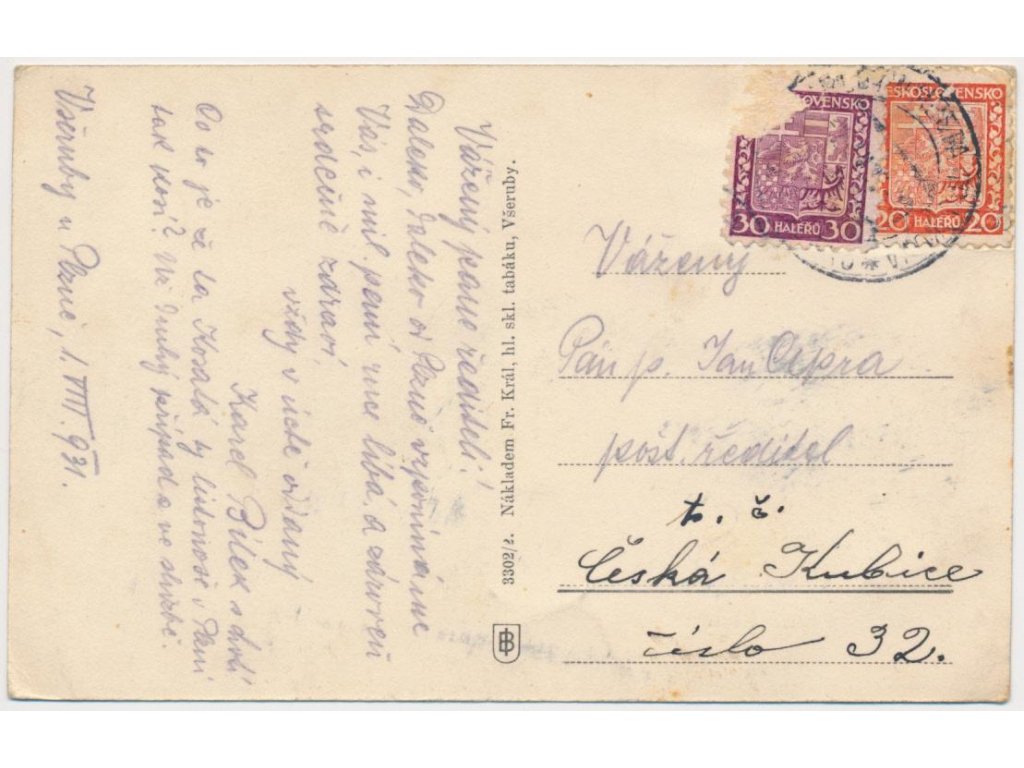 Vážený pane řediteli!
Daleko, daleko od Plzně vzpomínáme
Vás, i mil. paní ruce líbá, a zároveň
srdečné zdraví
vždy v úctě oddaný
Karel Bílek s chotí
Co to je že ta Koalá ty listonoše v Plzni
tak nosí? Už druhý případ a ve službě.
Všeruby u Plzně, 1. VIII. 931.
3302/ž. Nákladem Fr. Král, hl. skl. tabáku, Všeruby.
B
OVENSKO
30 HALÉŘŮ 30
ČESKOSLOVENSKO
20 HALÉŘŮ 20
Vážený
Pán p. Jan Cepra
pošt. ředitel
t. č.
Česká Kubice
číslo 32.